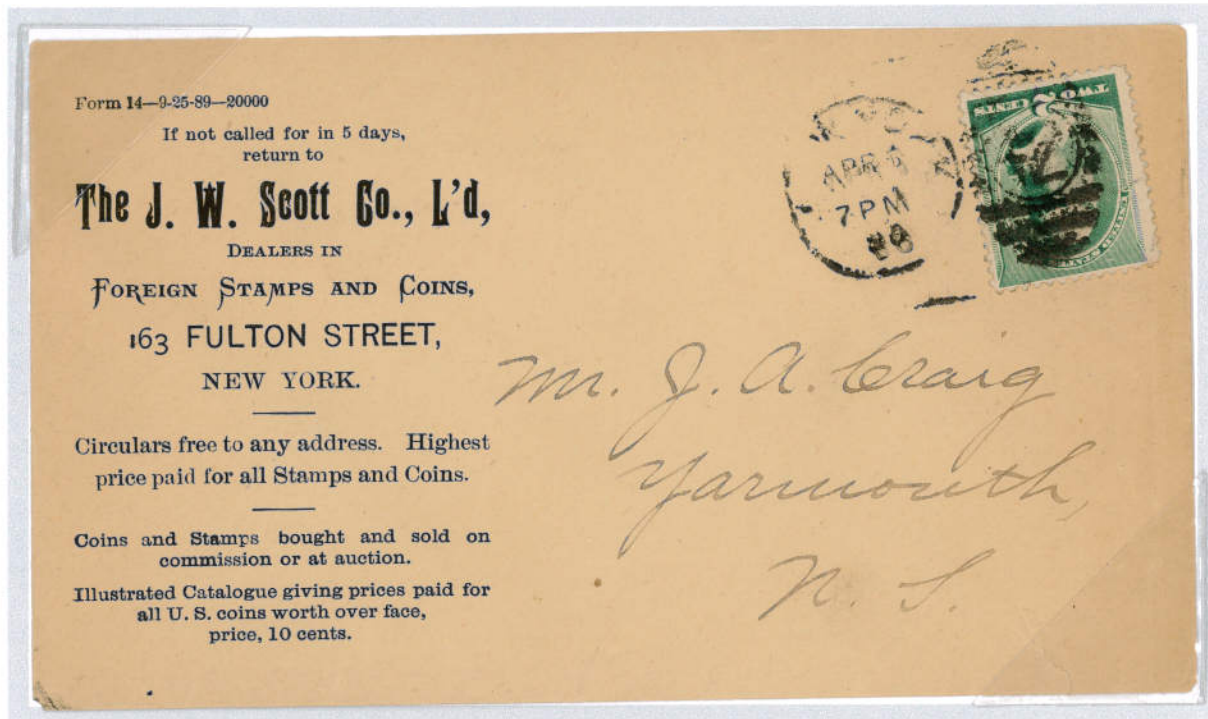 Form 14—9-25-89—20000
If not called for in 5 days,
return to
The J. W. Scott Co., L'd,
DEALERS IN
FOREIGN STAMPS AND COINS,
163 FULTON STREET,
NEW YORK.
Circulars free to any address. Highest
price paid for all Stamps and Coins.
Coins and Stamps bought and sold on
commission or at auction.
Illustrated Catalogue giving prices paid for
all U. S. coins worth over face,
price, 10 cents.
APR
7 PM
TWO 2 CENTS
Mr. J. A. Craig
Yarmouth,
N. S.